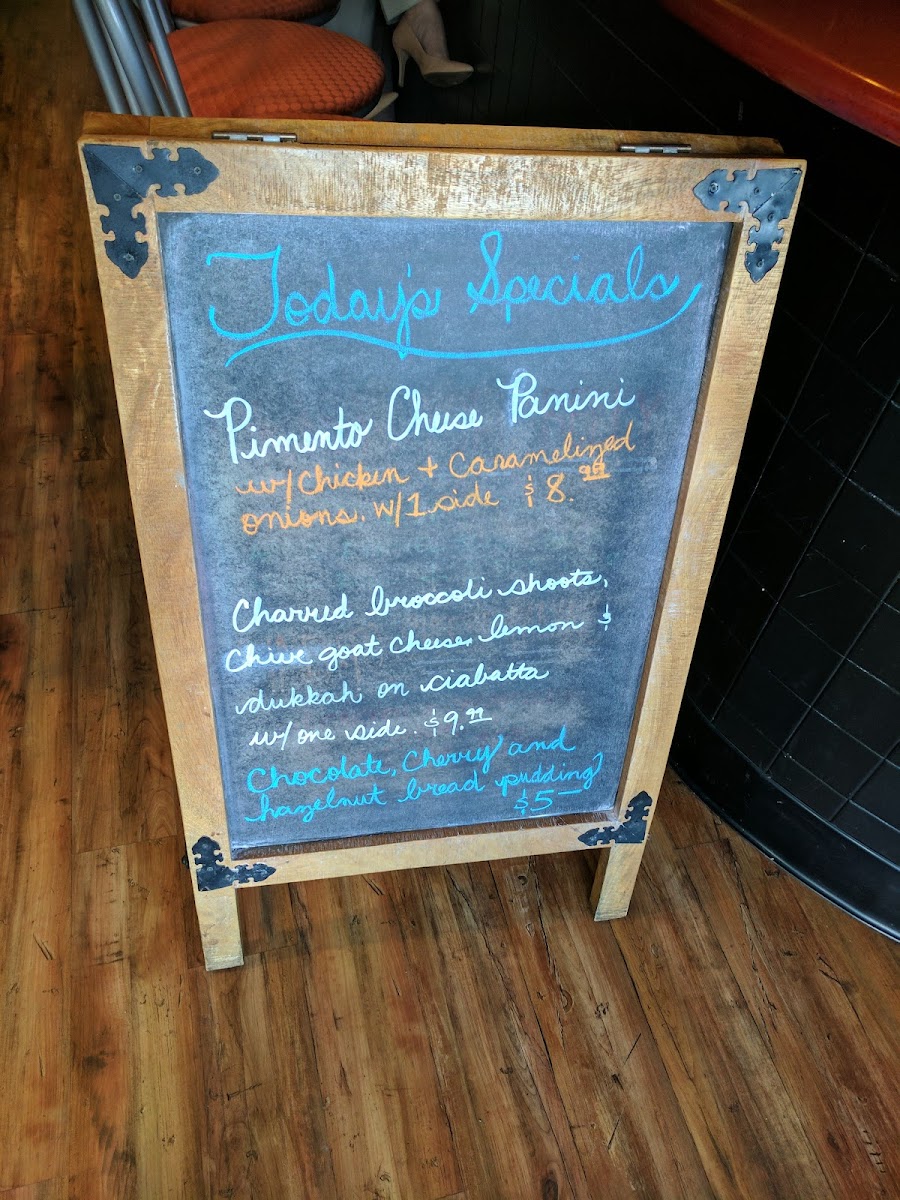 Today's Specials
Pimento Cheese Panini
w/Chicken + Caramelized
onions. w/1 side $8.99
Charred broccoli shoots,
Chive goat cheese, lemon &
dukkah on ciabatta
w/one side. $9.99
Chocolate, Cherry and
hazelnut bread pudding
$5—